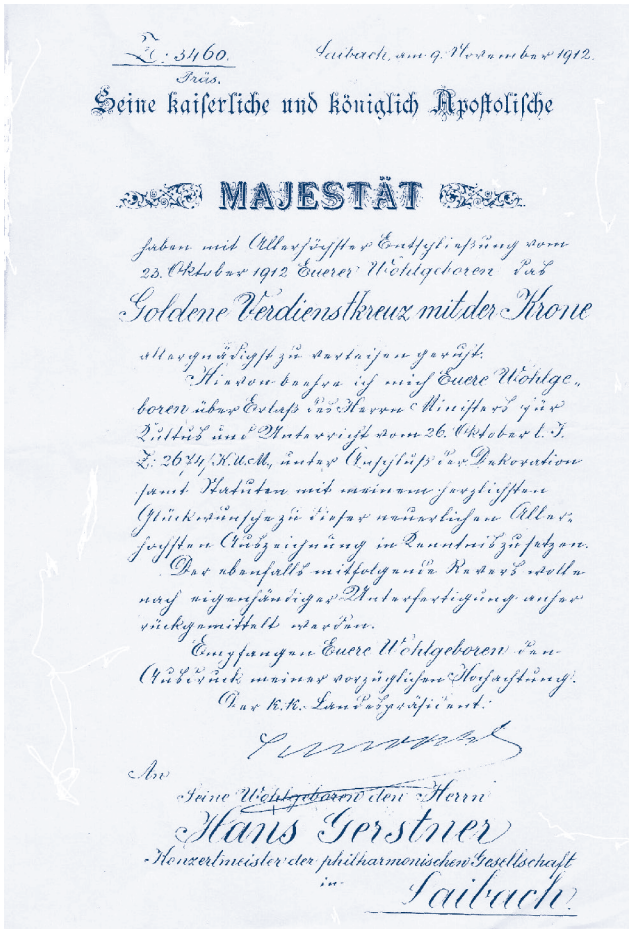 Z: 3460.
Präs.
Laibach, am 9. November 1912.
Seine kaiserliche und königlich Apostolische
MAJESTÄT
haben mit Allerhöchster Entschließung vom
23. Oktober 1912 Euerer Wohlgeboren das
Goldene Verdienstkreuz mit der Krone
allergnädigst zu verleihen geruht.
Hievon beehre ich mich Euere Wohlge-
boren über Erlaß des Herrn Ministers für
Kultus und Unterricht vom 26. Oktober l. J.
Z: 2674/K.U.M., unter Anschluß der Dekoration
samt Statuten mit meinem herzlichsten
Glückwunsche zu dieser neuerlichen Aller-
höchsten Auszeichnung in Kenntnis zu setzen.
Der ebenfalls mitfolgende Revers wolle
nach eigenhändiger Unterfertigung anher
rückgemittelt werden.
Empfangen Euere Wohlgeboren den
Ausdruck meiner vorzüglichen Hochachtung.
Der k.k. Landespräsident:
An
Seine Wohlgeboren den Herrn
Hans Gerstner
Konzertmeister der philharmonischen Gesellschaft
in
Laibach.